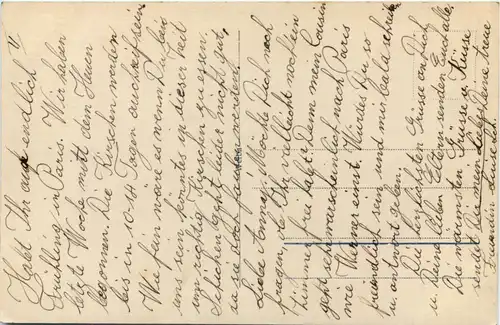 V
Habt Ihr auch endlich
Frühling in Paris. Wir haben
letzte Woche mitt dem Heuen
begonnen. Die Kirschen werden
bis in 10-14 Tagen auch reif sein.
Wie fein wäre es wenn Du bei
uns sein könntest zu dieser Zeit
um richtig Kirschen zu essen.
Schicken geht leider nicht gut,
da sie doch faulen werden.
Liebe Emma, Möchte Dich noch
fragen, ob Ihr vielleicht noch ein
Zimmer frei habt? Denn mein Cousin
geht sehr warscheinlich nach Paris
wie Werner einst. Würdest Du so
freundlich sein und mir bald schreiben
u. antwort geben.
Die herzlichsten Grüsse an Dich
u. Deine lieben Eltern senden Euch alle.
Die wärmsten Grüsse u. Küsse
sendet Dir meine liebe
Freundin Deine treue